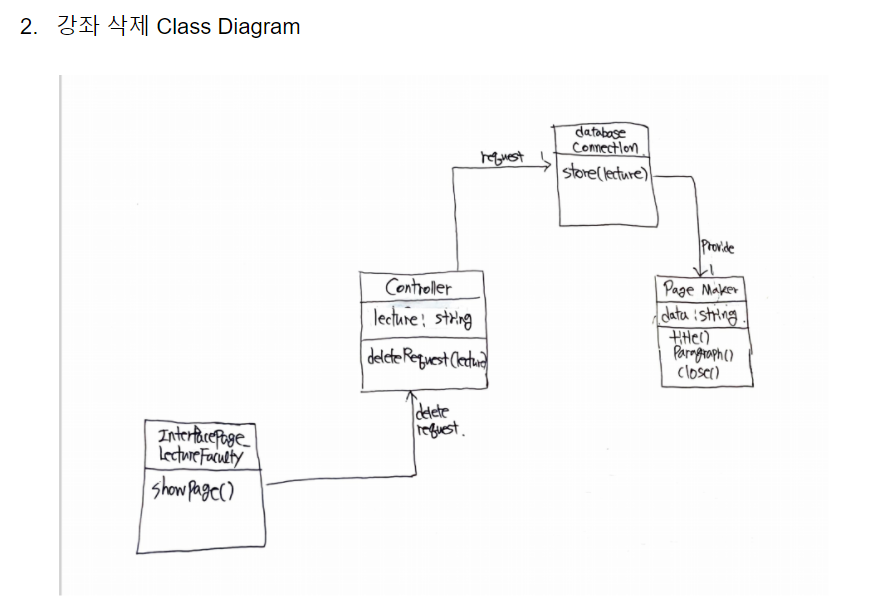 2. 강좌 삭제 Class Diagram
database
Connection
request
store(lecture)
Provide
Controller
lecture: string
deleteRequest(lecture)
Page Maker
data:string
title()
Paragraph()
close()
delete
request.
InterfacePage_
LectureFaculty
showPage()